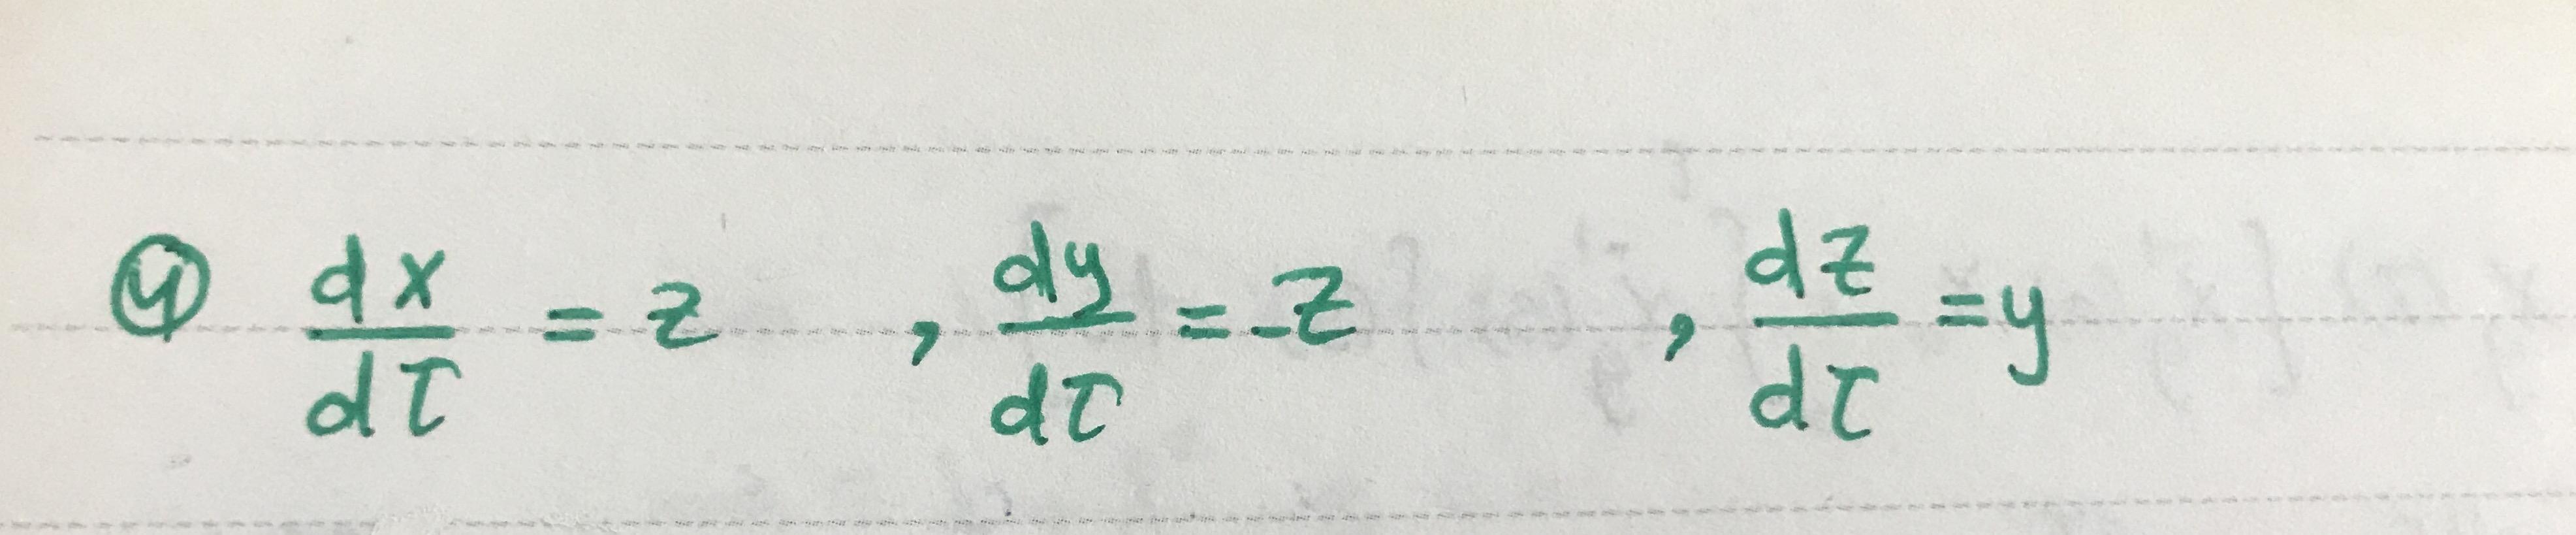 ④ dx/dτ = z , dy/dτ = -z , dz/dτ = y